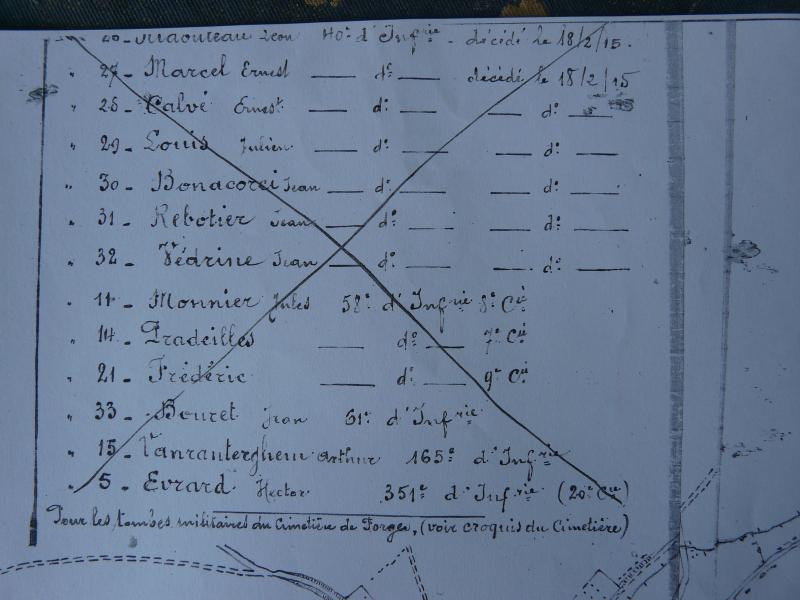 Léon 40e d'Infrie - décédé le 18/2/15.
" 27 - Marcel Ernest — do — décédé le 18/2/15
" 28 - Calvé Ernest — do — — do —
" 29 - Louis Julien — do — — do —
" 30 - Bonacorci Jean — do — — do —
" 31 - Rebotier Jean — do — — do —
" 32 - Védrine Jean — do — — do —
" 11 - Monnier Jules 58e d'Infrie 8e Cie
" 14 - Pradeilles — do — 7e Cie
" 21 - Frédéric — do — 9e Cie
" 33 - Bouret Jean 61e d'Infrie
" 15 - Vanrauterghem Arthur 165e d'Infrie
" 5 - Evrard Hector 351e d'Infrie (20e Cie)
Pour les tombes militaires du Cimetière de Forges, (voir croquis du Cimetière)